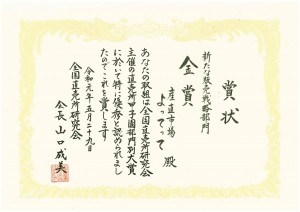 賞状
新たな販売戦略部門
金賞
産直市場
よってって 殿
あなたの取組は全国直売所研究会
主催の直売所甲子園部門別大賞
に於いて特に優秀と認められまし
たのでこれを賞します
令和元年五月二十九日
全国直売所研究会
会長 山口成美